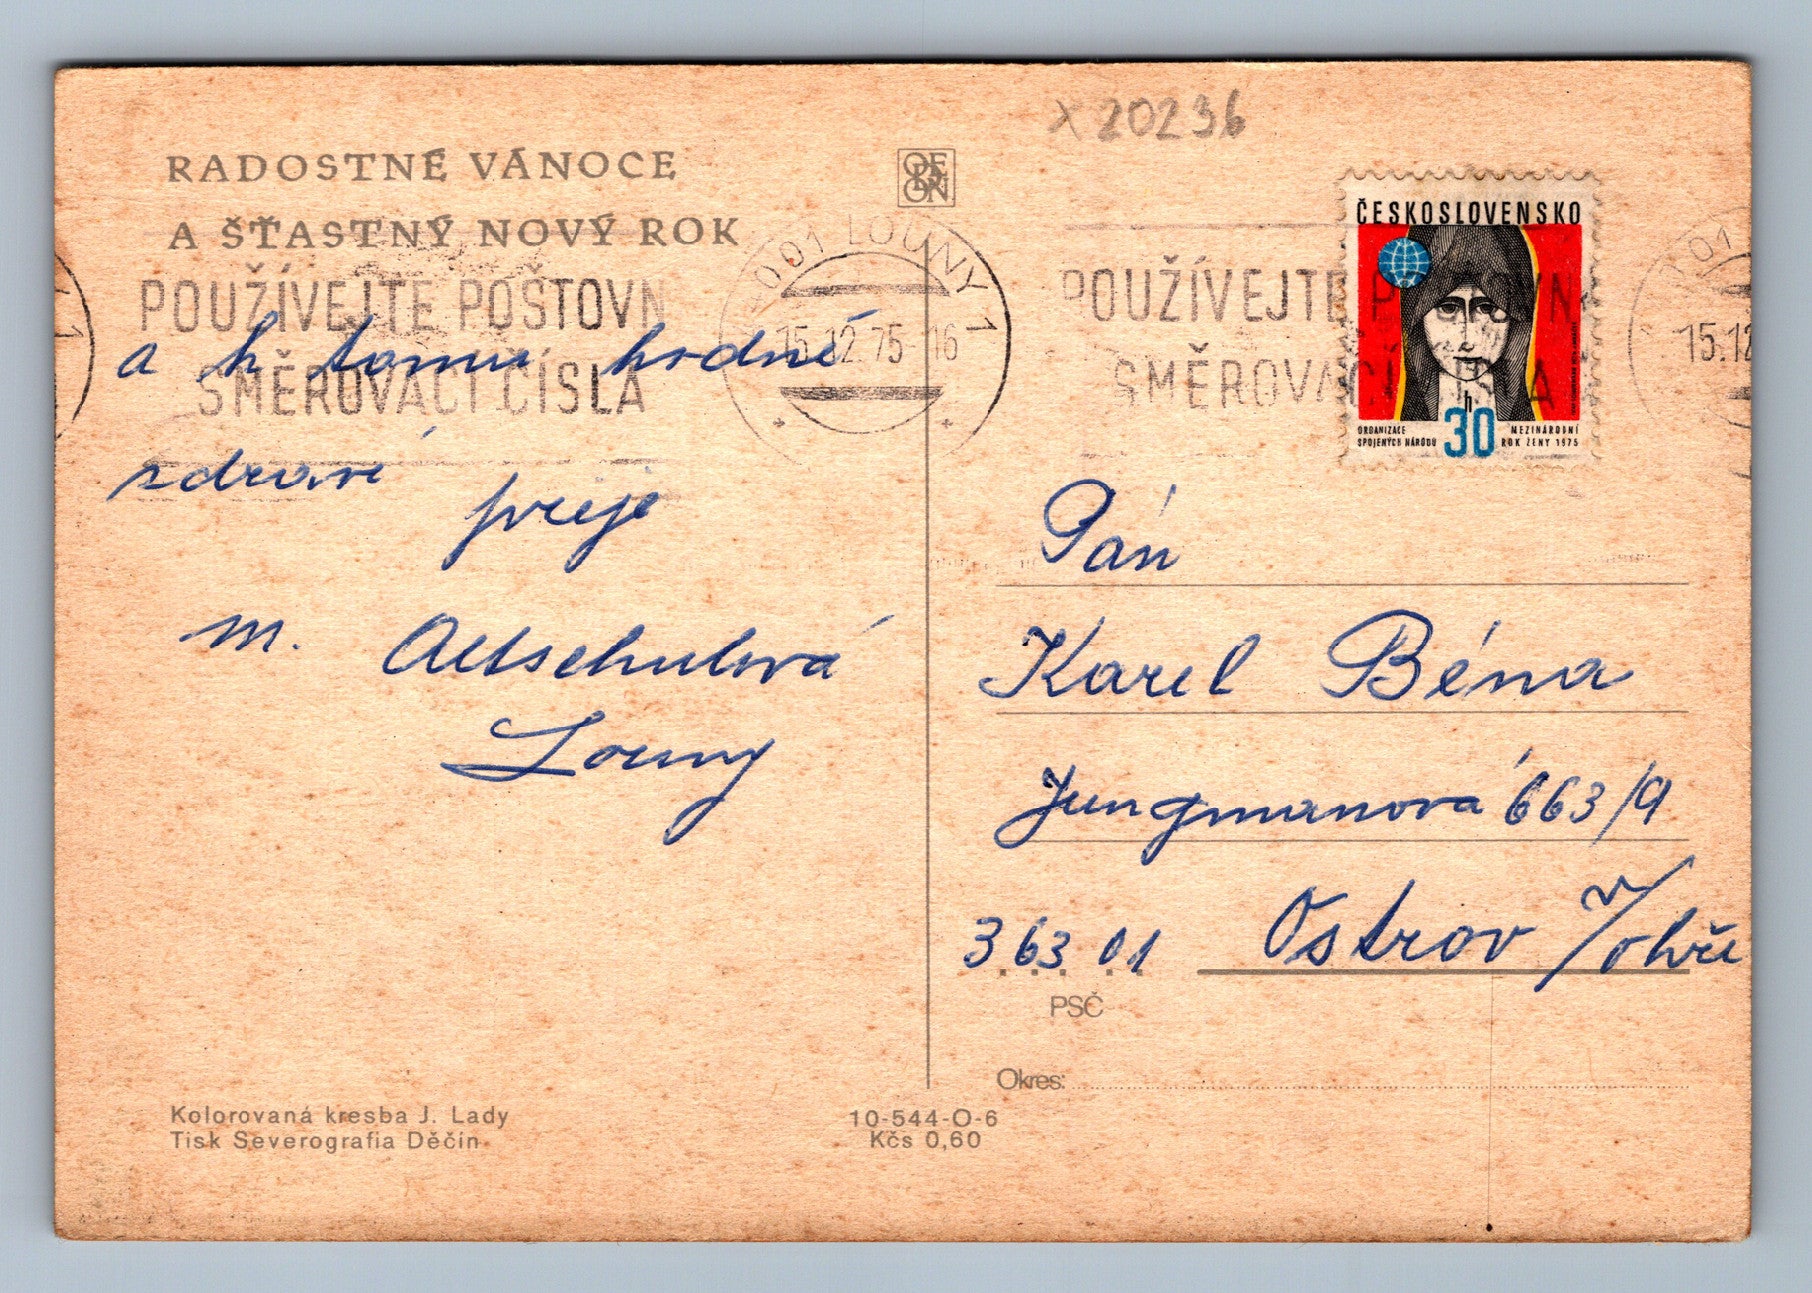 x 20236
RADOSTNÉ VÁNOCE
A ŠŤASTNÝ NOVÝ ROK
ODEON
POUŽÍVEJTE POŠTOVN
SMĚROVACÍ ČÍSLA
001 LOUNY 1
15.12.75-16
a k tomu hodně
zdraví
přeje
M. Altschulová
Louny
POUŽÍVEJTE POŠTOVN
SMĚROVACÍ ČÍSLA
15.12
ČESKOSLOVENSKO
h
30
ORGANIZACE
SPOJENÝCH NÁRODŮ
MEZINÁRODNÍ
ROK ŽENY 1975
Pán
Karel Béna
Jungmanová 663/9
363 01 Ostrov n/Ohří
PSČ
Okres:
Kolorovaná kresba J. Lady
Tisk Severografia Děčín
10-544-O-6
Kčs 0,60